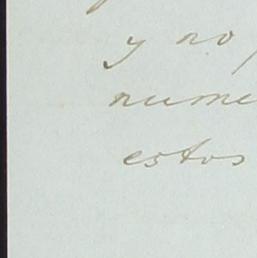 y no
nume
estos